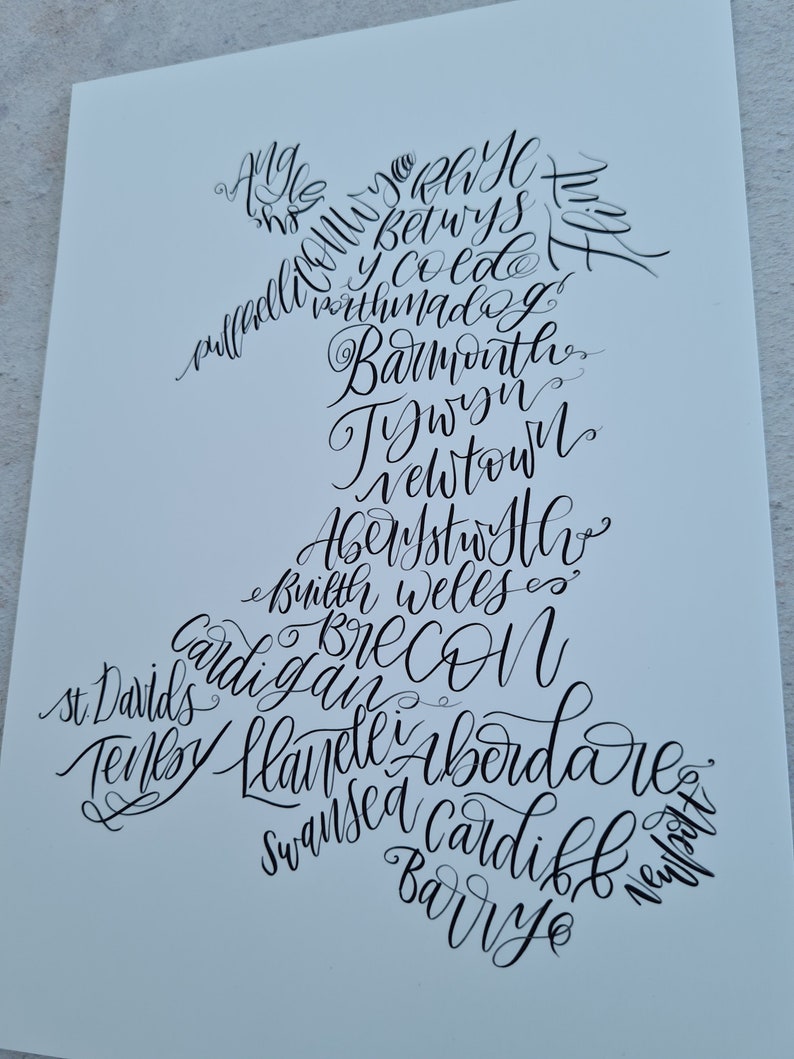 Angle
sey
Conwy
Rhyl
Flint
Betwys
y Coed
pwllheli
porthmadog
Barmouth
Tywyn
newtown
Aberystwyth
Builth wells
Brecon
Cardigan
St. Davids
Tenby
Llanelli
Aberdare
Swansea
Cardiff
Newport
Barry